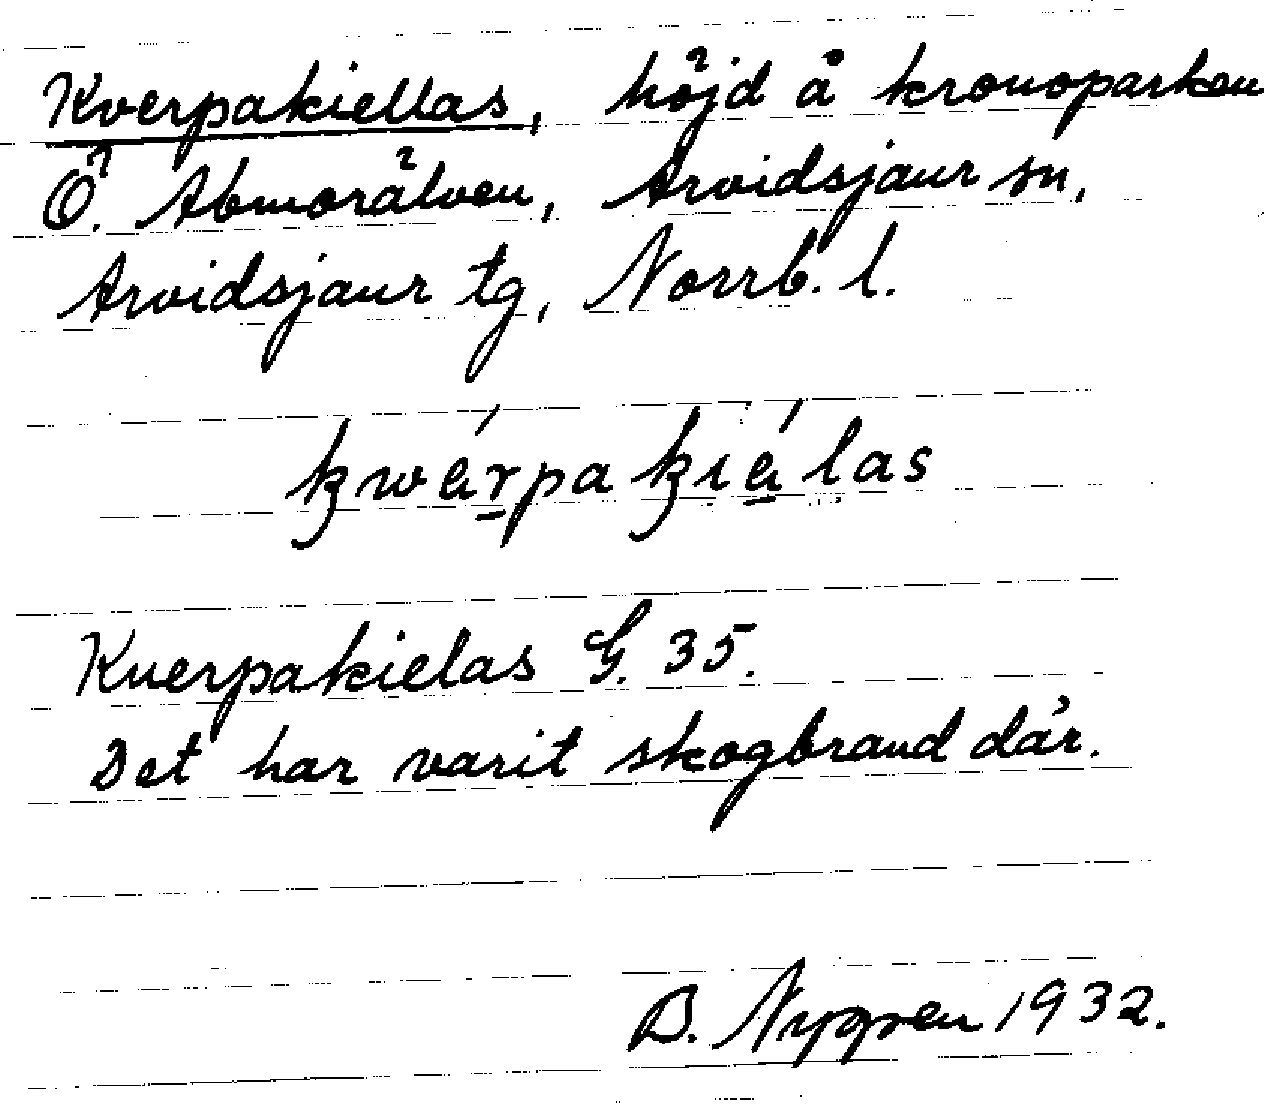 Kverpakiellas, höjd å kronoparken
Ö. Abmorälven, Arvidsjaur sn,
Arvidsjaur tg, Norrb. l.
kwérpakiélas
Kuerpakielas G. 35.
Det har varit skogbrand där.
B. Nygren 1932.